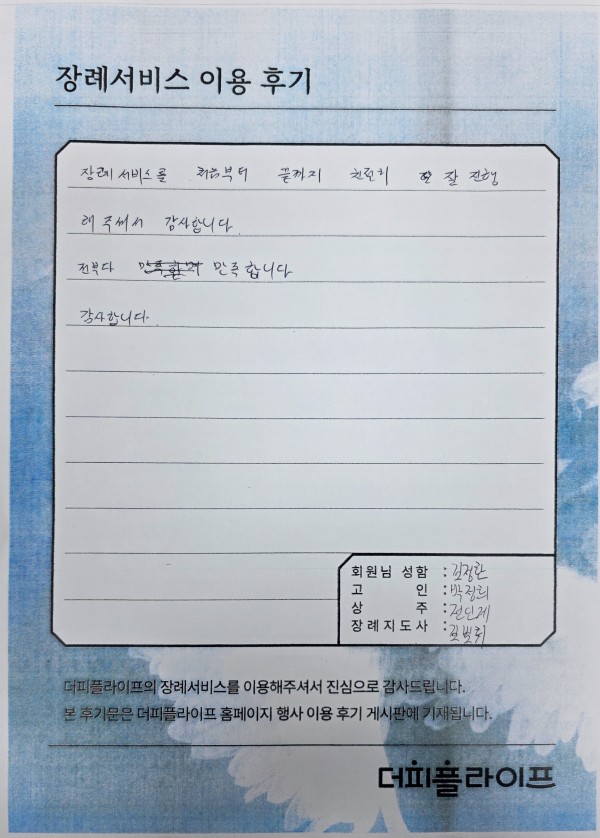 장례서비스 이용 후기
장례서비스를 처음부터 끝까지 친절히 잘 진행
해 주셔서 감사합니다.
전부다 만족합니다
감사합니다.
회원님 성함 :
고 인 : 박정희
상 주 :
장례지도사 :
더피플라이프의 장례서비스를 이용해주셔서 진심으로 감사드립니다.
본 후기문은 더피플라이프 홈페이지 행사 이용 후기 게시판에 기재됩니다.
더피플라이프